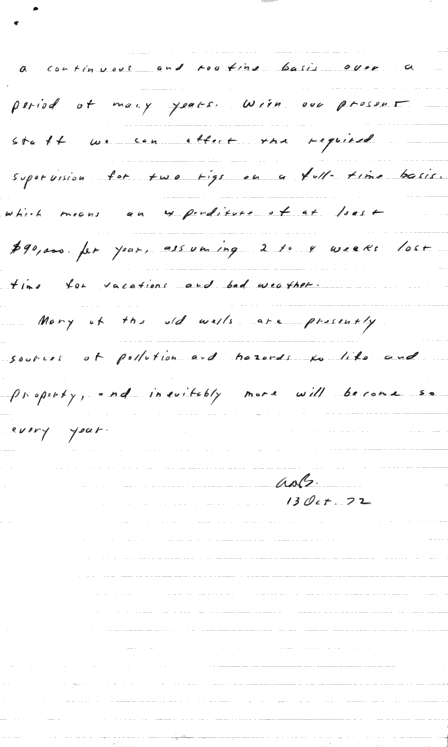 a continuous and routine basis over a
period of many years. With our present
staff we can effect the required
supervision for two rigs on a full-time basis.
which means an expenditure of at least
$90,000. per year, assuming 2 to 4 weeks lost
time for vacations and bad weather.
Many of the old wells are presently
sources of pollution and hazards to life and
property, and inevitably more will become so
every year.
13 Oct. 72